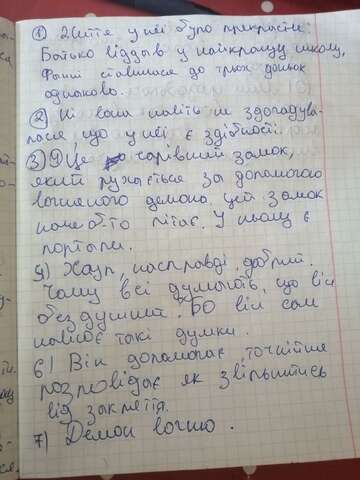 ① Життя у неї було прекрасне:
Батько віддав у найкращу школу,
Фанні ставилася до трьох доньок
однаково.
② Ні вона навіть не здогадува-
лася, що у неї є здібності.
3) Це чарівний замок,
який рухається за допомогою
вогняного демона. Цей замок
наче б-то літає. У ньому є
портали.
4) Хаул, насправді, добрий.
Чому всі думають, що він
бездушний. БО він сам
навіює такі думки.
6) Він допомагає, точніше
розповідає як звільнитись
від закляття.
7) Демон вогню.